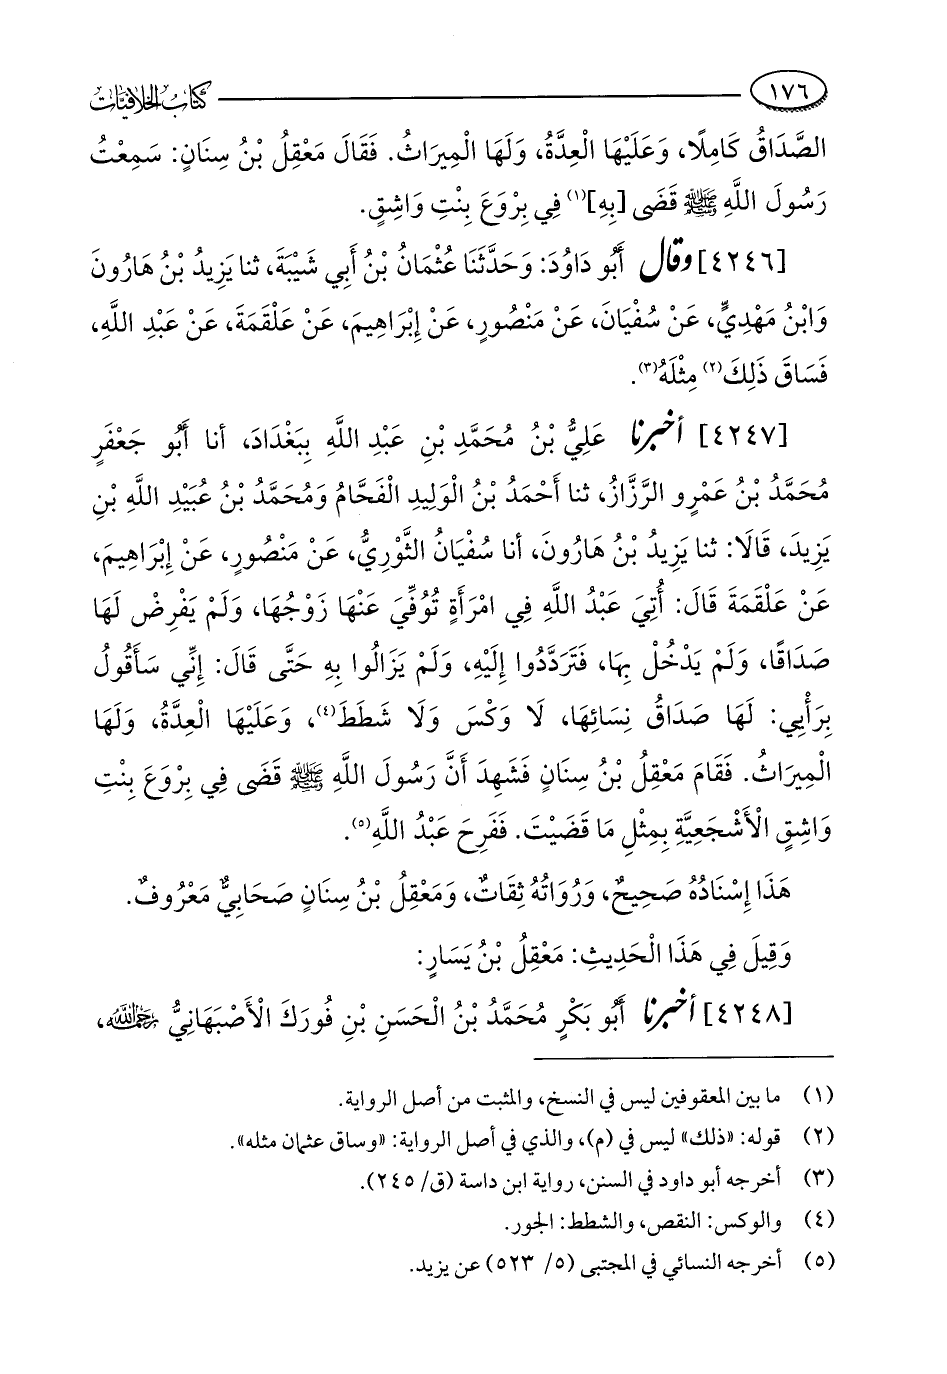 ١٧٦ كتاب الخلافيات
الصَّدَاقُ كَامِلًا، وَعَلَيْهَا الْعِدَّةُ، وَلَهَا الْمِيرَاثُ. فَقَالَ مَعْقِلُ بْنُ سِنَانٍ: سَمِعْتُ
رَسُولَ اللَّهِ ﷺ قَضَى [بِهِ](١) فِي بِرْوَعَ بِنْتِ وَاشِقٍ.
[٤٢٤٦] وقال أَبُو دَاوُدَ: وَحَدَّثَنَا عُثْمَانُ بْنُ أَبِي شَيْبَةَ، ثنا يَزِيدُ بْنُ هَارُونَ
وَابْنُ مَهْدِيٍّ، عَنْ سُفْيَانَ، عَنْ مَنْصُورٍ، عَنْ إِبْرَاهِيمَ، عَنْ عَلْقَمَةَ، عَنْ عَبْدِ اللَّهِ،
فَسَاقَ ذَلِكَ(٢) مِثْلَهُ(٣).
[٤٢٤٧] أخبرنا عَلِيُّ بْنُ مُحَمَّدِ بْنِ عَبْدِ اللَّهِ بِبَغْدَادَ، أنا أَبُو جَعْفَرٍ
مُحَمَّدُ بْنُ عَمْرٍو الرَّزَّازُ، ثنا أَحْمَدُ بْنُ الْوَلِيدِ الْفَحَّامُ وَمُحَمَّدُ بْنُ عُبَيْدِ اللَّهِ بْنِ
يَزِيدَ، قَالَا: ثنا يَزِيدُ بْنُ هَارُونَ، أنا سُفْيَانُ الثَّوْرِيُّ، عَنْ مَنْصُورٍ، عَنْ إِبْرَاهِيمَ،
عَنْ عَلْقَمَةَ قَالَ: أُتِيَ عَبْدُ اللَّهِ فِي امْرَأَةٍ تُوُفِّيَ عَنْهَا زَوْجُهَا، وَلَمْ يَفْرِضْ لَهَا
صَدَاقًا، وَلَمْ يَدْخُلْ بِهَا، فَتَرَدَّدُوا إِلَيْهِ، وَلَمْ يَزَالُوا بِهِ حَتَّى قَالَ: إِنِّي سَأَقُولُ
بِرَأْيِي: لَهَا صَدَاقُ نِسَائِهَا، لَا وَكْسَ وَلَا شَطَطَ(٤)، وَعَلَيْهَا الْعِدَّةُ، وَلَهَا
الْمِيرَاثُ. فَقَامَ مَعْقِلُ بْنُ سِنَانٍ فَشَهِدَ أَنَّ رَسُولَ اللَّهِ ﷺ قَضَى فِي بِرْوَعَ بِنْتِ
وَاشِقٍ الْأَشْجَعِيَّةِ بِمِثْلِ مَا قَضَيْتَ. فَفَرِحَ عَبْدُ اللَّهِ(٥).
هَذَا إِسْنَادُهُ صَحِيحٌ، وَرُوَاتُهُ ثِقَاتٌ، وَمَعْقِلُ بْنُ سِنَانٍ صَحَابِيٌّ مَعْرُوفٌ.
وَقِيلَ فِي هَذَا الْحَدِيثِ: مَعْقِلُ بْنُ يَسَارٍ:
[٤٢٤٨] أخبرنا أَبُو بَكْرٍ مُحَمَّدُ بْنُ الْحَسَنِ بْنِ فُورَكَ الْأَصْبَهَانِيُّ رحمه الله،
(١) ما بين المعقوفين ليس في النسخ، والمثبت من أصل الرواية.
(٢) قوله: «ذلك» ليس في (م)، والذي في أصل الرواية: «وساق عثمان مثله».
(٣) أخرجه أبو داود في السنن، رواية ابن داسة (ق/ ٢٤٥).
(٤) والوكس: النقص، والشطط: الجور.
(٥) أخرجه النسائي في المجتبى (٥/ ٥٢٣) عن يزيد.